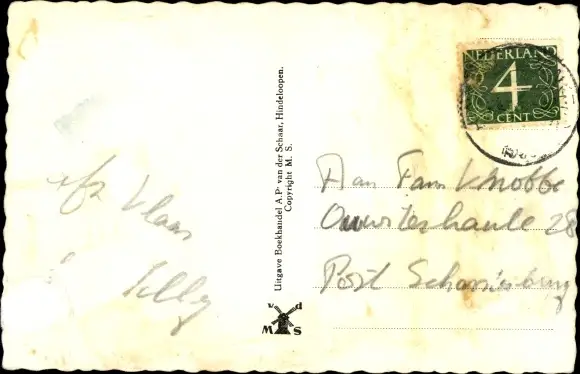 NEDERLAND
4
CENT
Uitgave Boekhandel A.P. van der Schaar, Hindeloopen.
Copyright M. S.
v d
M S
afz Klaas
Aan Fam Knobbe
Ouwsterhaule 28
Post Scharsterbrug